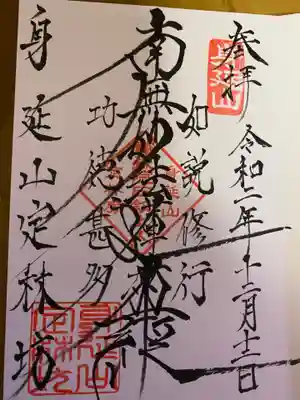 奉拝 令和二年十二月十二日
身延山
如説修行
南無妙法蓮華経
功徳甚多
身延山定林坊